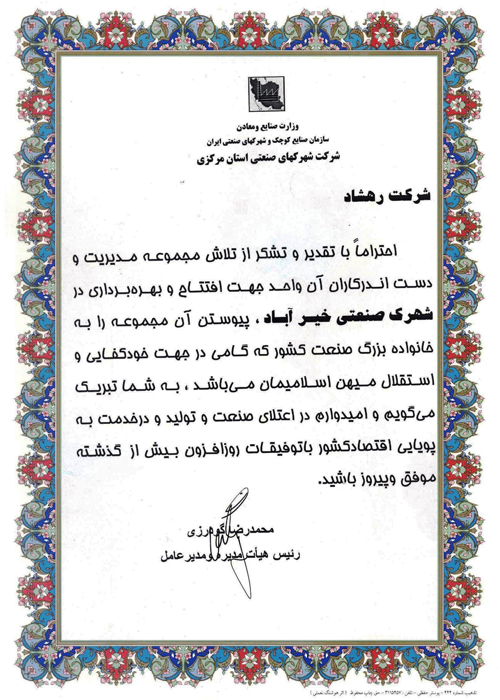 وزارت صنایع ومعادن
سازمان صنایع کوچک و شهرکهای صنعتی ایران
شرکت شهرکهای صنعتی استان مرکزی
شرکت رهشاد
احتراماً با تقدیر و تشکر از تلاش مجموعه مدیریت و
دست اندرکاران آن واحد جهت افتتاح و بهره‌برداری در
شهرک صنعتی خیر آباد ، پیوستن آن مجموعه را به
خانواده بزرگ صنعت کشور که گامی در جهت خودکفایی و
استقلال میهن اسلامیمان می‌باشد ، به شما تبریک
می‌گویم و امیدوارم در اعتلای صنعت و تولید و درخدمت به
پویایی اقتصادکشور باتوفیقات روزافزون بیش از گذشته
موفق وپیروز باشید.
محمدرضا گودرزی
رئیس هیأت مدیره و مدیرعامل